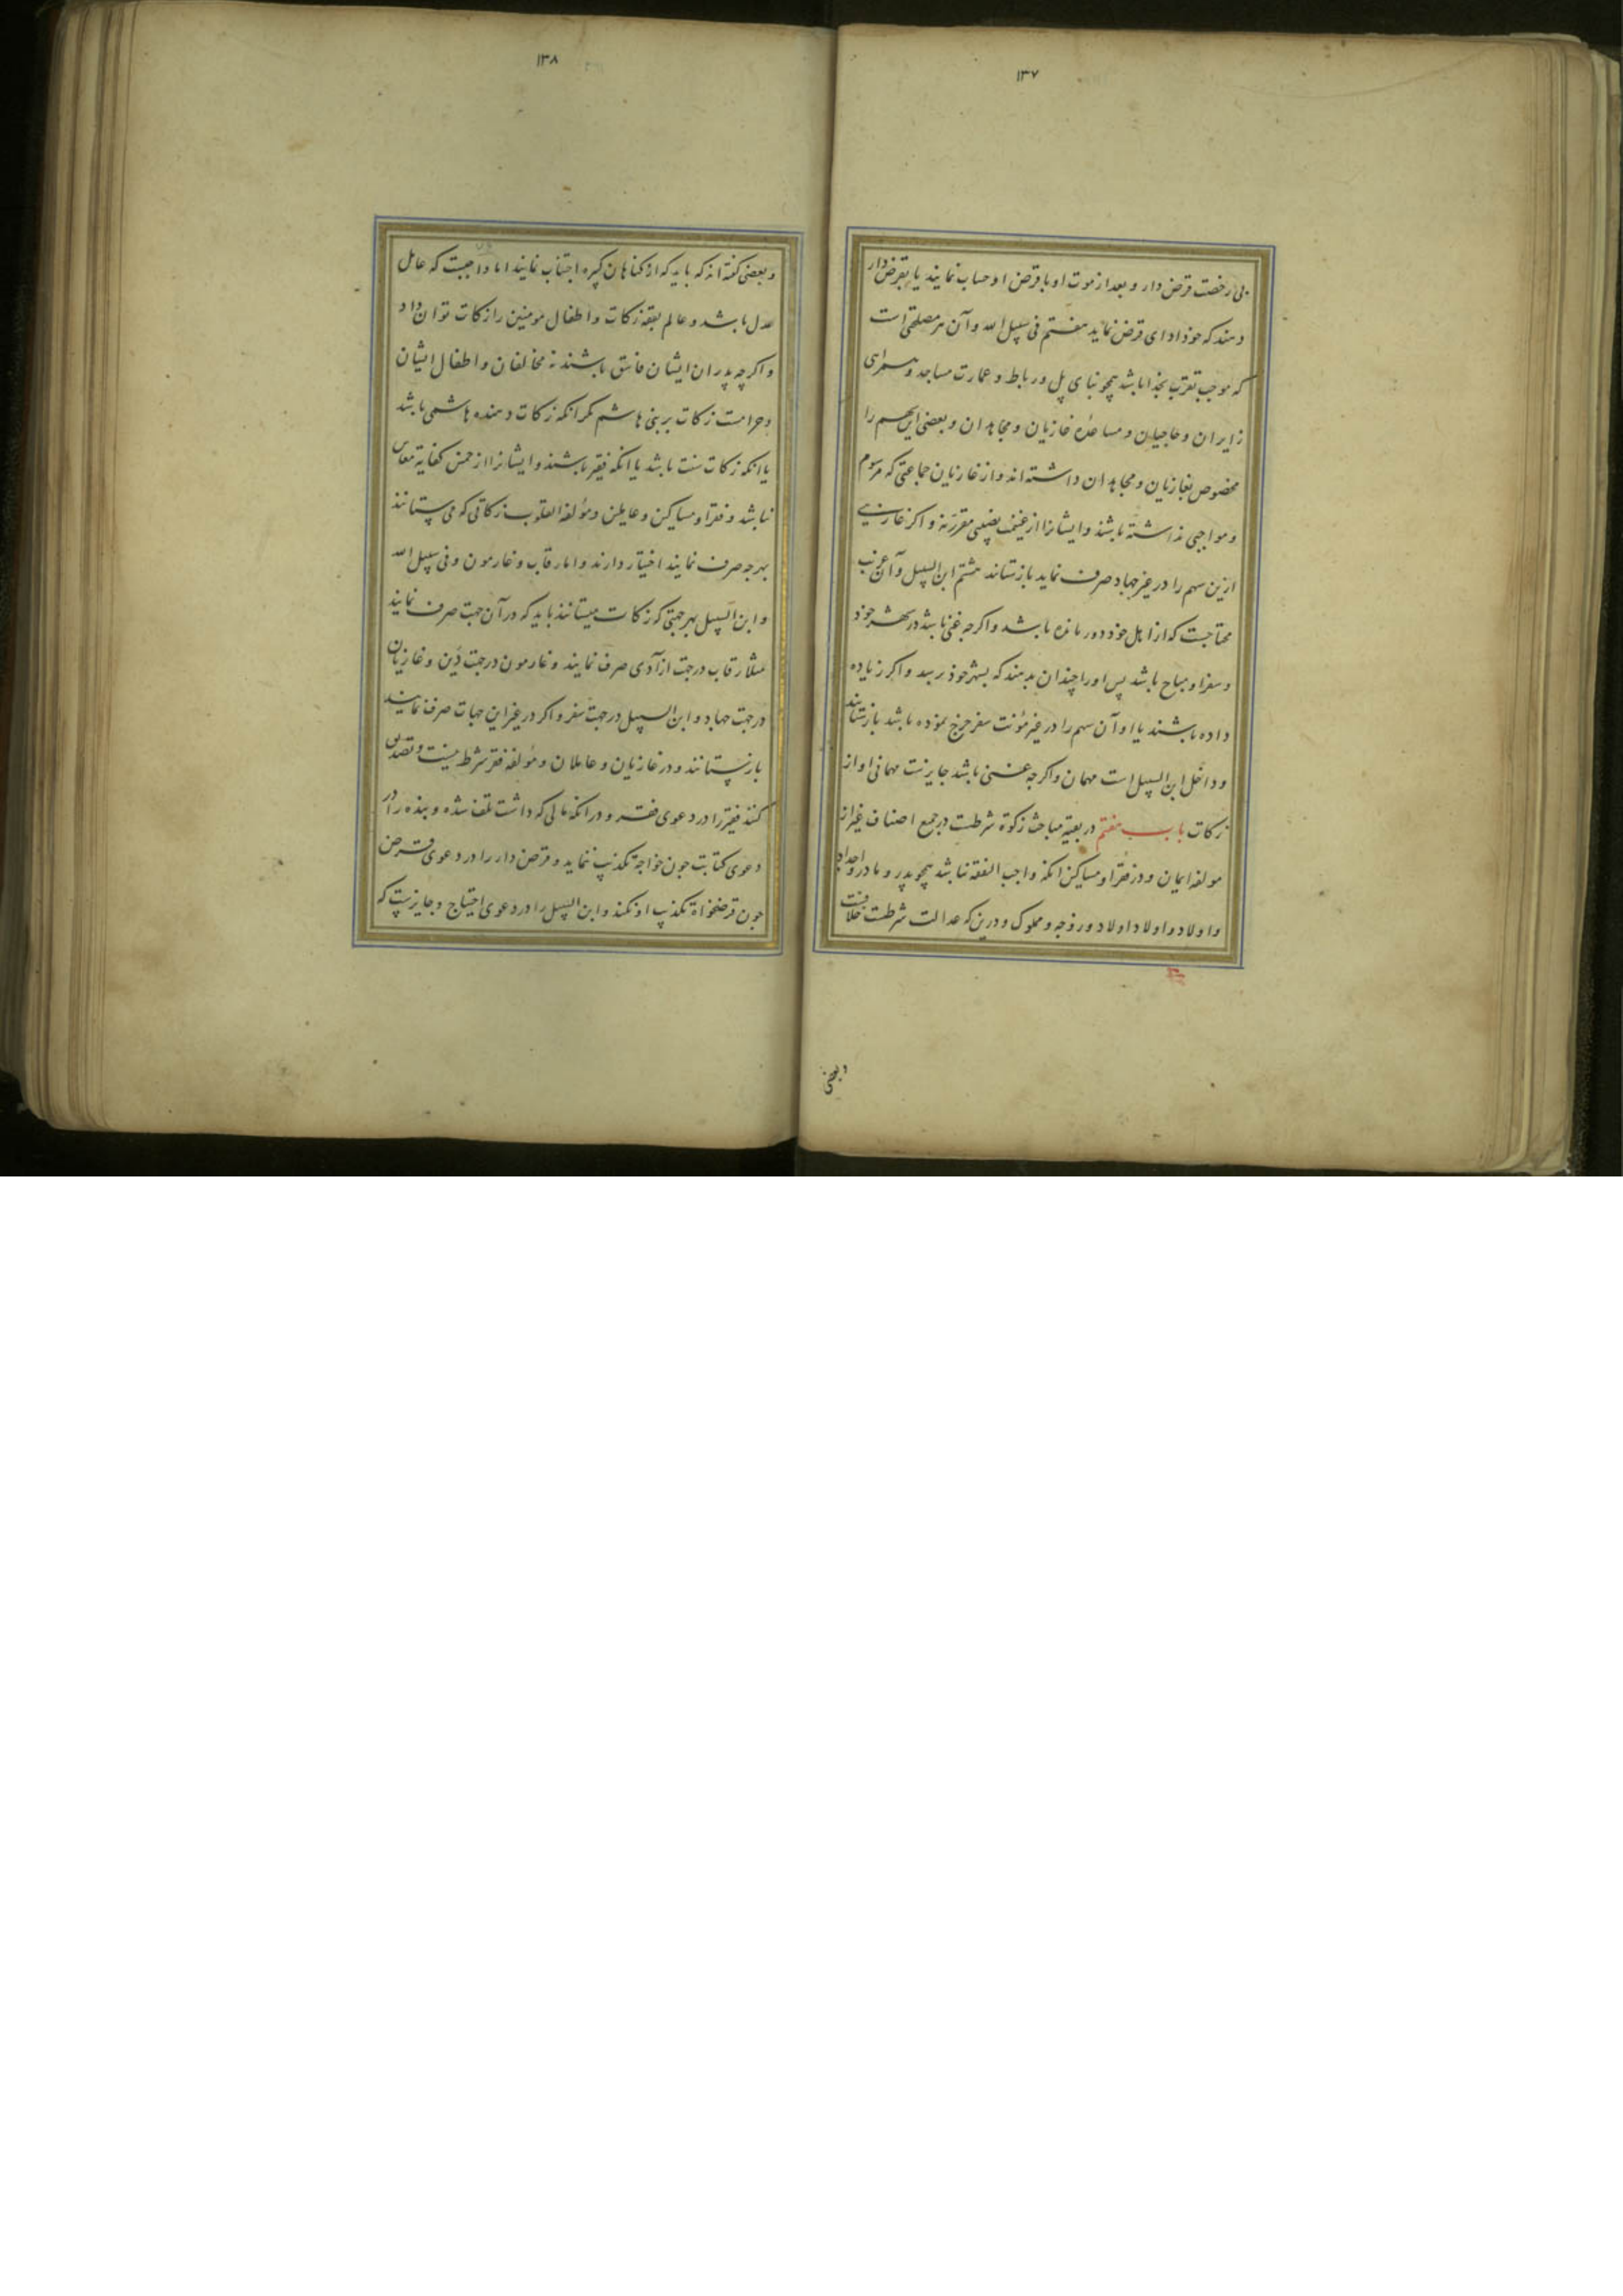 ۱۳۷
بی رخصت قرض دار و بعد از موت او با قرض او حساب نمایند یا بقرض دار
دهند که خود ادای قرض نماید هفتم فی سبیل الله و آن هر مصلحتی است
که موجب تقرب بخدا باشد همچو بنای پل و رباط و عمارت مساجد و همراهی
زایران و حاجیان و مساعده غازیان و مجاهدان و بعضی این سهم را
مخصوص بغازیان و مجاهدان داشته اند و از غازیان جماعتی که مرسوم
و مواجبی نداشته باشند و ایشانرا از غنیمت نصیبی مقرر نه و اکر غازیی
ازین سهم را در غیر جهاد صرف نماید باز ستاند هشتم ابن السبیل و آن غریب
محتاجیست که از اهل خود دور مانده باشد و اکرچه غنی باشد در شهر خود
و سفر او مباح باشد پس او را چندان بدهند که بشهر خود رسد و اکر زیاده
داده باشند یا او آن سهم را در غیر مؤنت سفر خرج نموده باشد باز ستانند
و داخل ابن السبیل است مهمان و اکرچه غنی باشد جایزست مهمانی او از
زکات باب هفتم در بقیه مباحث زکوة شرطست در جمیع اصناف غیر از
مولفه ایمان و در فقرا و مساکین انکه واجب النفقه نباشد همچو پدر و مادر و اجداد
و اولاد و اولاد اولاد و زوجه و مملوک و درین که عدالت شرطست خلافست
وبعضی
۱۳۸
و بعضی کفته اند که باید که از کناهان کبیره اجتناب نمایند اما واجبست که عامل
عدل باشد و عالم بفقه زکات و اطفال مومنین را زکات توان داد
و اکرچه پدران ایشان فاسق باشند نه مخالفان و اطفال ایشان
و حرامست زکات بر بنی هاشم مکر انکه زکات دهنده هاشمی باشد
یا انکه زکات سنت باشد یا انکه فقیر باشند و ایشانرا از خمس کفایة معاش
نباشد و فقرا و مساکین و عاملین و مؤلفة القلوب زکاتی که می ستانند
بهرجه صرف نمایند اختیار دارند و اما رقاب و غارمون و فی سبیل الله
و ابن السبیل بهر جهتی که زکات میستانند باید که در آن جهت صرف نمایند
مثلا رقاب در جهت ازادی صرف نمایند و غارمون در جهت دین و غازیان
در جهت جهاد و ابن السبیل در جهت سفر و اکر در غیر این جهات صرف نمایند
باز ستانند و در غازیان و عاملان و مؤلفه فقر شرط نیست و تصدیق
کنند فقیر را در دعوی فقر و در انکه مالی که داشت تلف شده و بنده را در
دعوی کتابت جون خواجه تکذیب ننماید و قرض دار را در دعوی قرض
جون قرضخواه تکذیب او نکند و ابن السبیل را در دعوی احتیاج و جایزست که